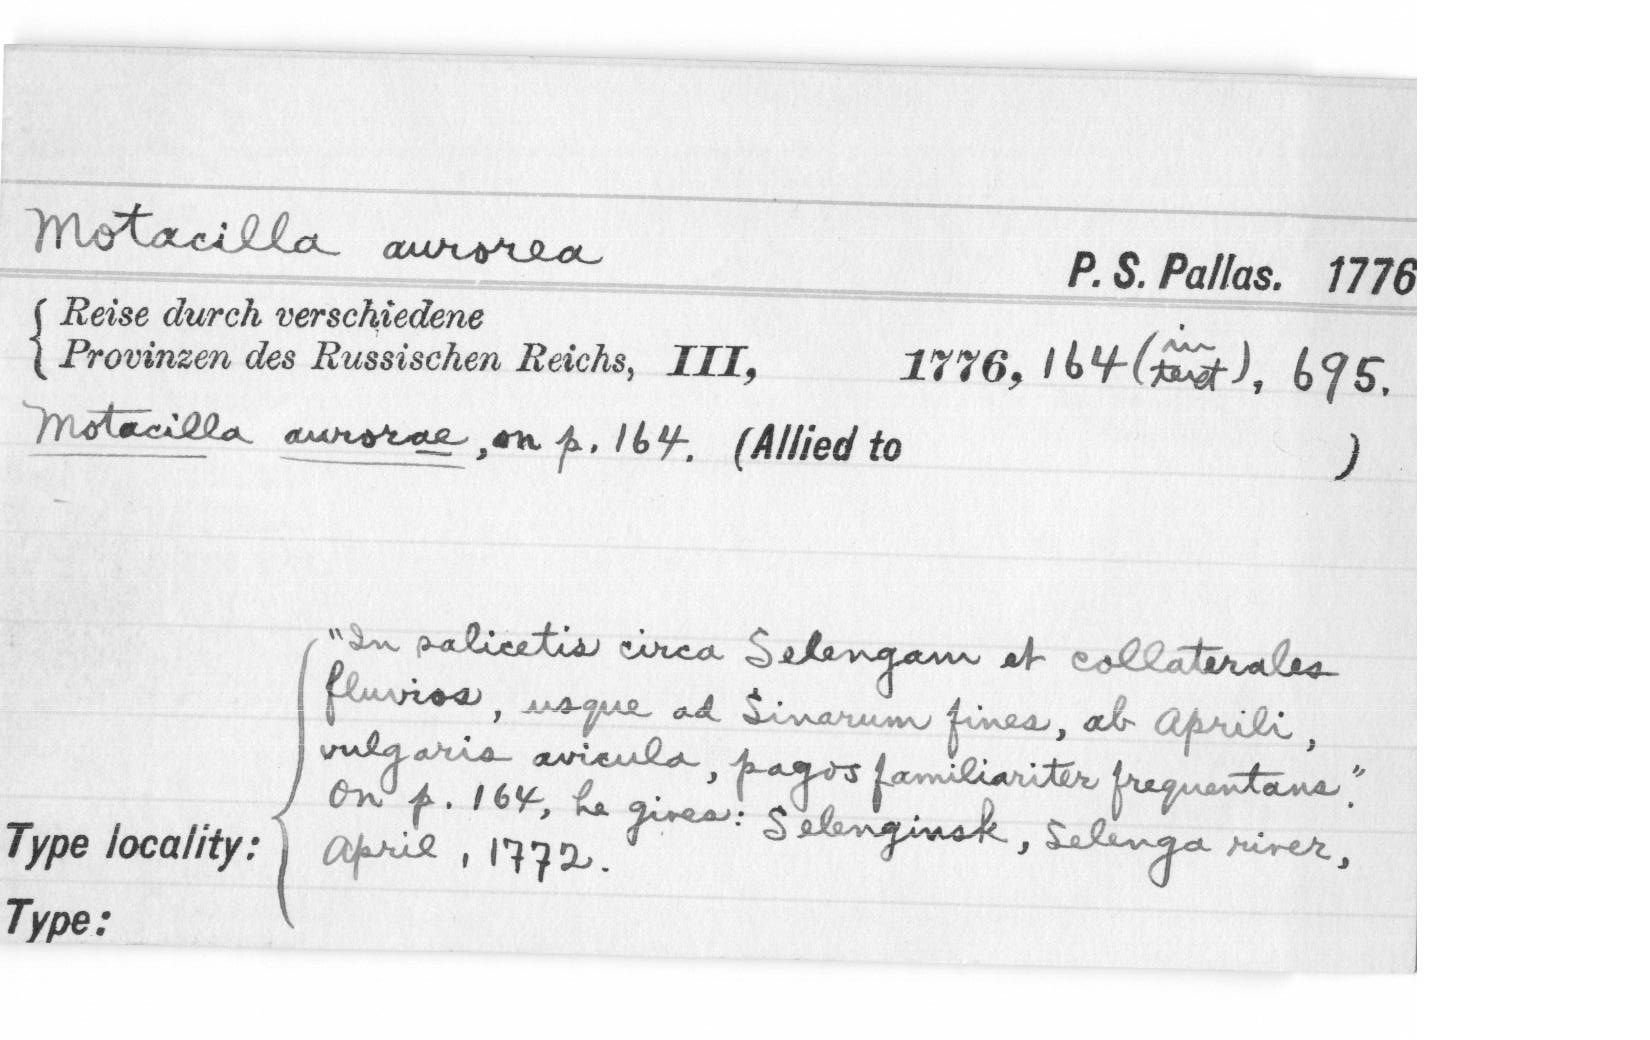 Motacilla aurorea
P. S. Pallas. 1776
Reise durch verschiedene
Provinzen des Russischen Reichs, III, 1776, 164 (in text), 695.
Motacilla aurorae, on p. 164. (Allied to )
"In salicetis circa Selengam et collaterales
fluvios, usque ad Sinarum fines, ab Aprili,
vulgaris avicula, pagos familiariter frequentans".
On p. 164, he gives: Selenginsk, Selenga river,
Type locality: April, 1772.
Type: